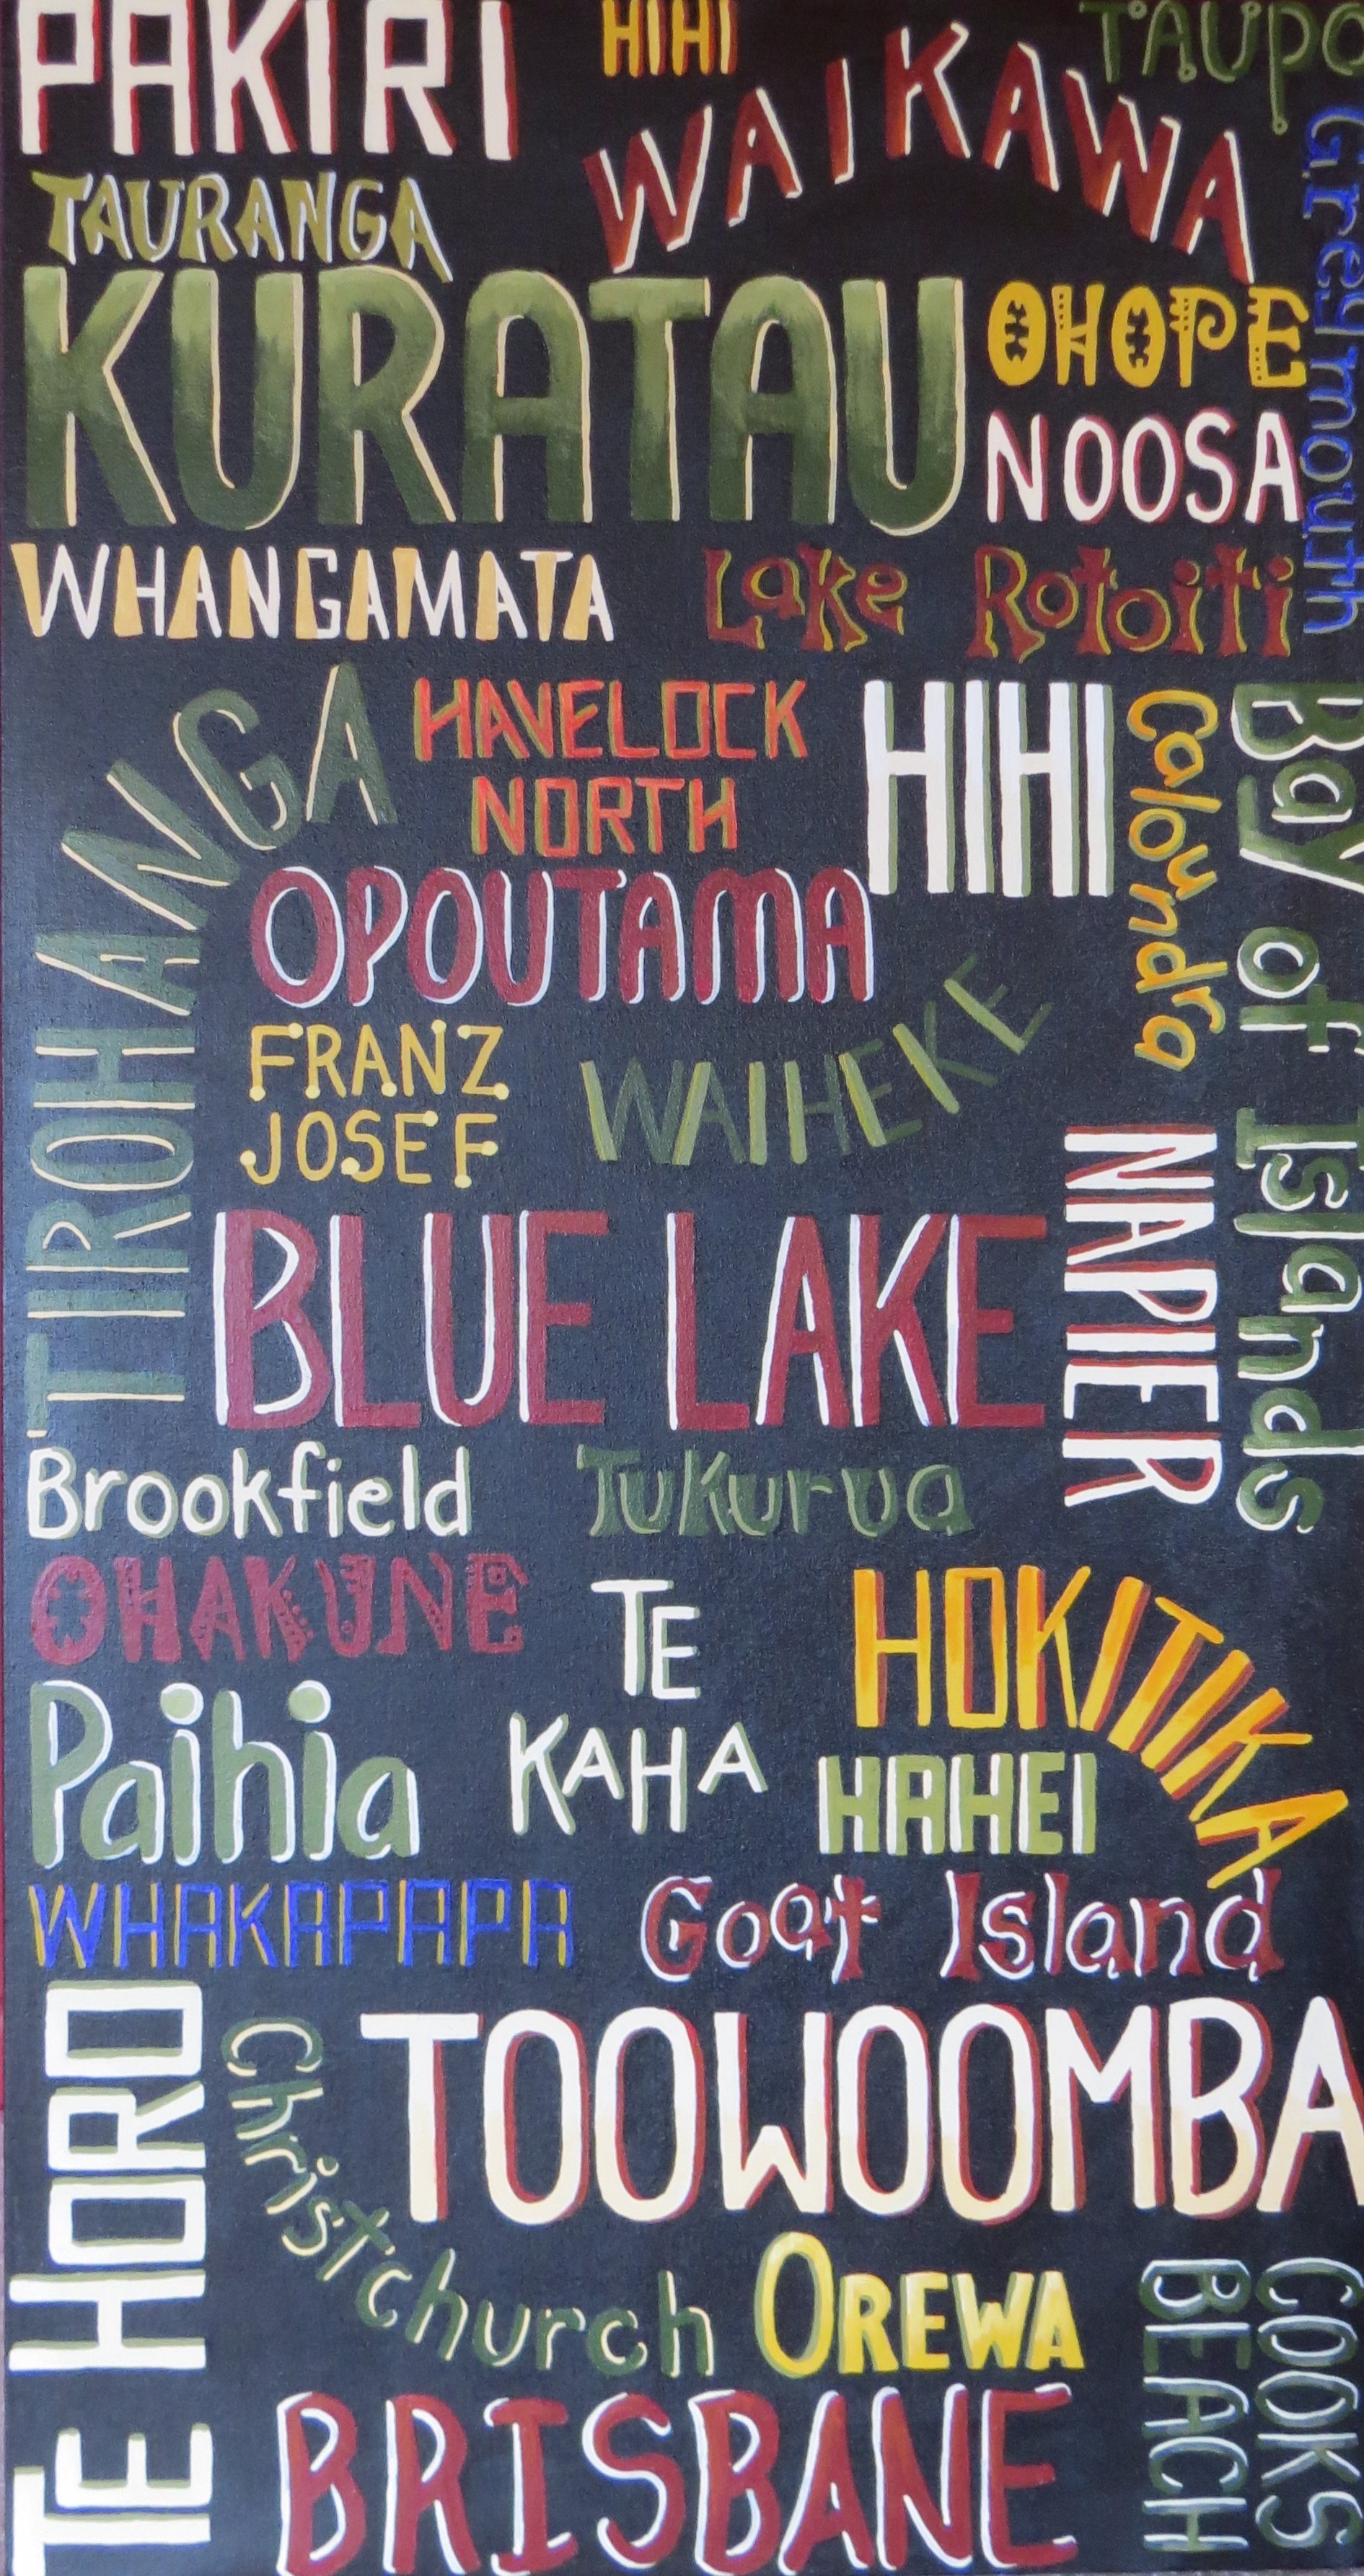 PAKIRI
HIHI
TAUPO
WAIKAWA
Greymouth
TAURANGA
KURATAU
OHOPE
NOOSA
WHANGAMATA
Lake Rotoiti
TIROHANGA
HAVELOCK
NORTH
HIHI
Caloundra
Bay of Islands
OPOUTAMA
FRANZ
JOSEF
WAIHEKE
NAPIER
BLUE LAKE
Brookfield
TuKurua
OHAKUNE
TE
KAHA
HOKITIKA
Paihia
HAHEI
WHAKAPAPA
Goat Island
TE HORO
Christchurch
TOOWOOMBA
OREWA
COOKS
BEACH
BRISBANE